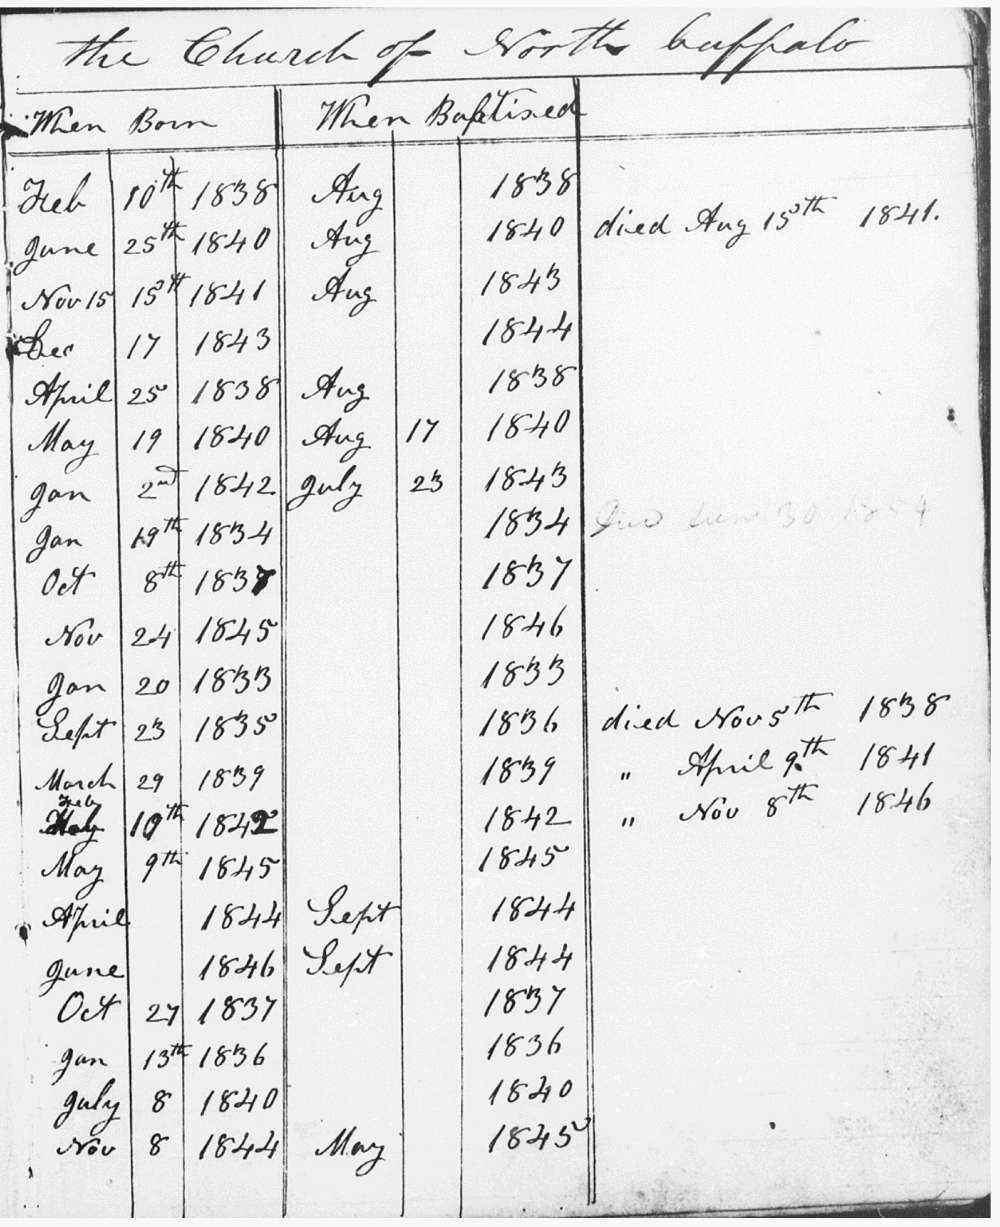 the Church of North buffalo
When Born When Baptised
Feb 10th 1838 Aug 1838
June 25th 1840 Aug 1840 died Aug 15th 1841.
Nov 15 15th 1841 Aug 1843
Dec 17 1843 1844
April 25 1838 Aug 1838
May 19 1840 Aug 17 1840
Jan 2nd 1842 July 23 1843
Jan 19th 1834 1834 Died June 30 1854
Oct 8th 1837 1837
Nov 24 1845 1846
Jan 20 1833 1833
Sept 23 1835 1836 died Nov 5th 1838
March 29 1839 1839 " April 9th 1841
Feby
10th 1842 1842 " Nov 8th 1846
May 9th 1845 1845
April 1844 Sept 1844
June 1846 Sept 1844
Oct 27 1837 1837
Jan 13th 1836 1836
July 8 1840 1840
Nov 8 1844 May 1845